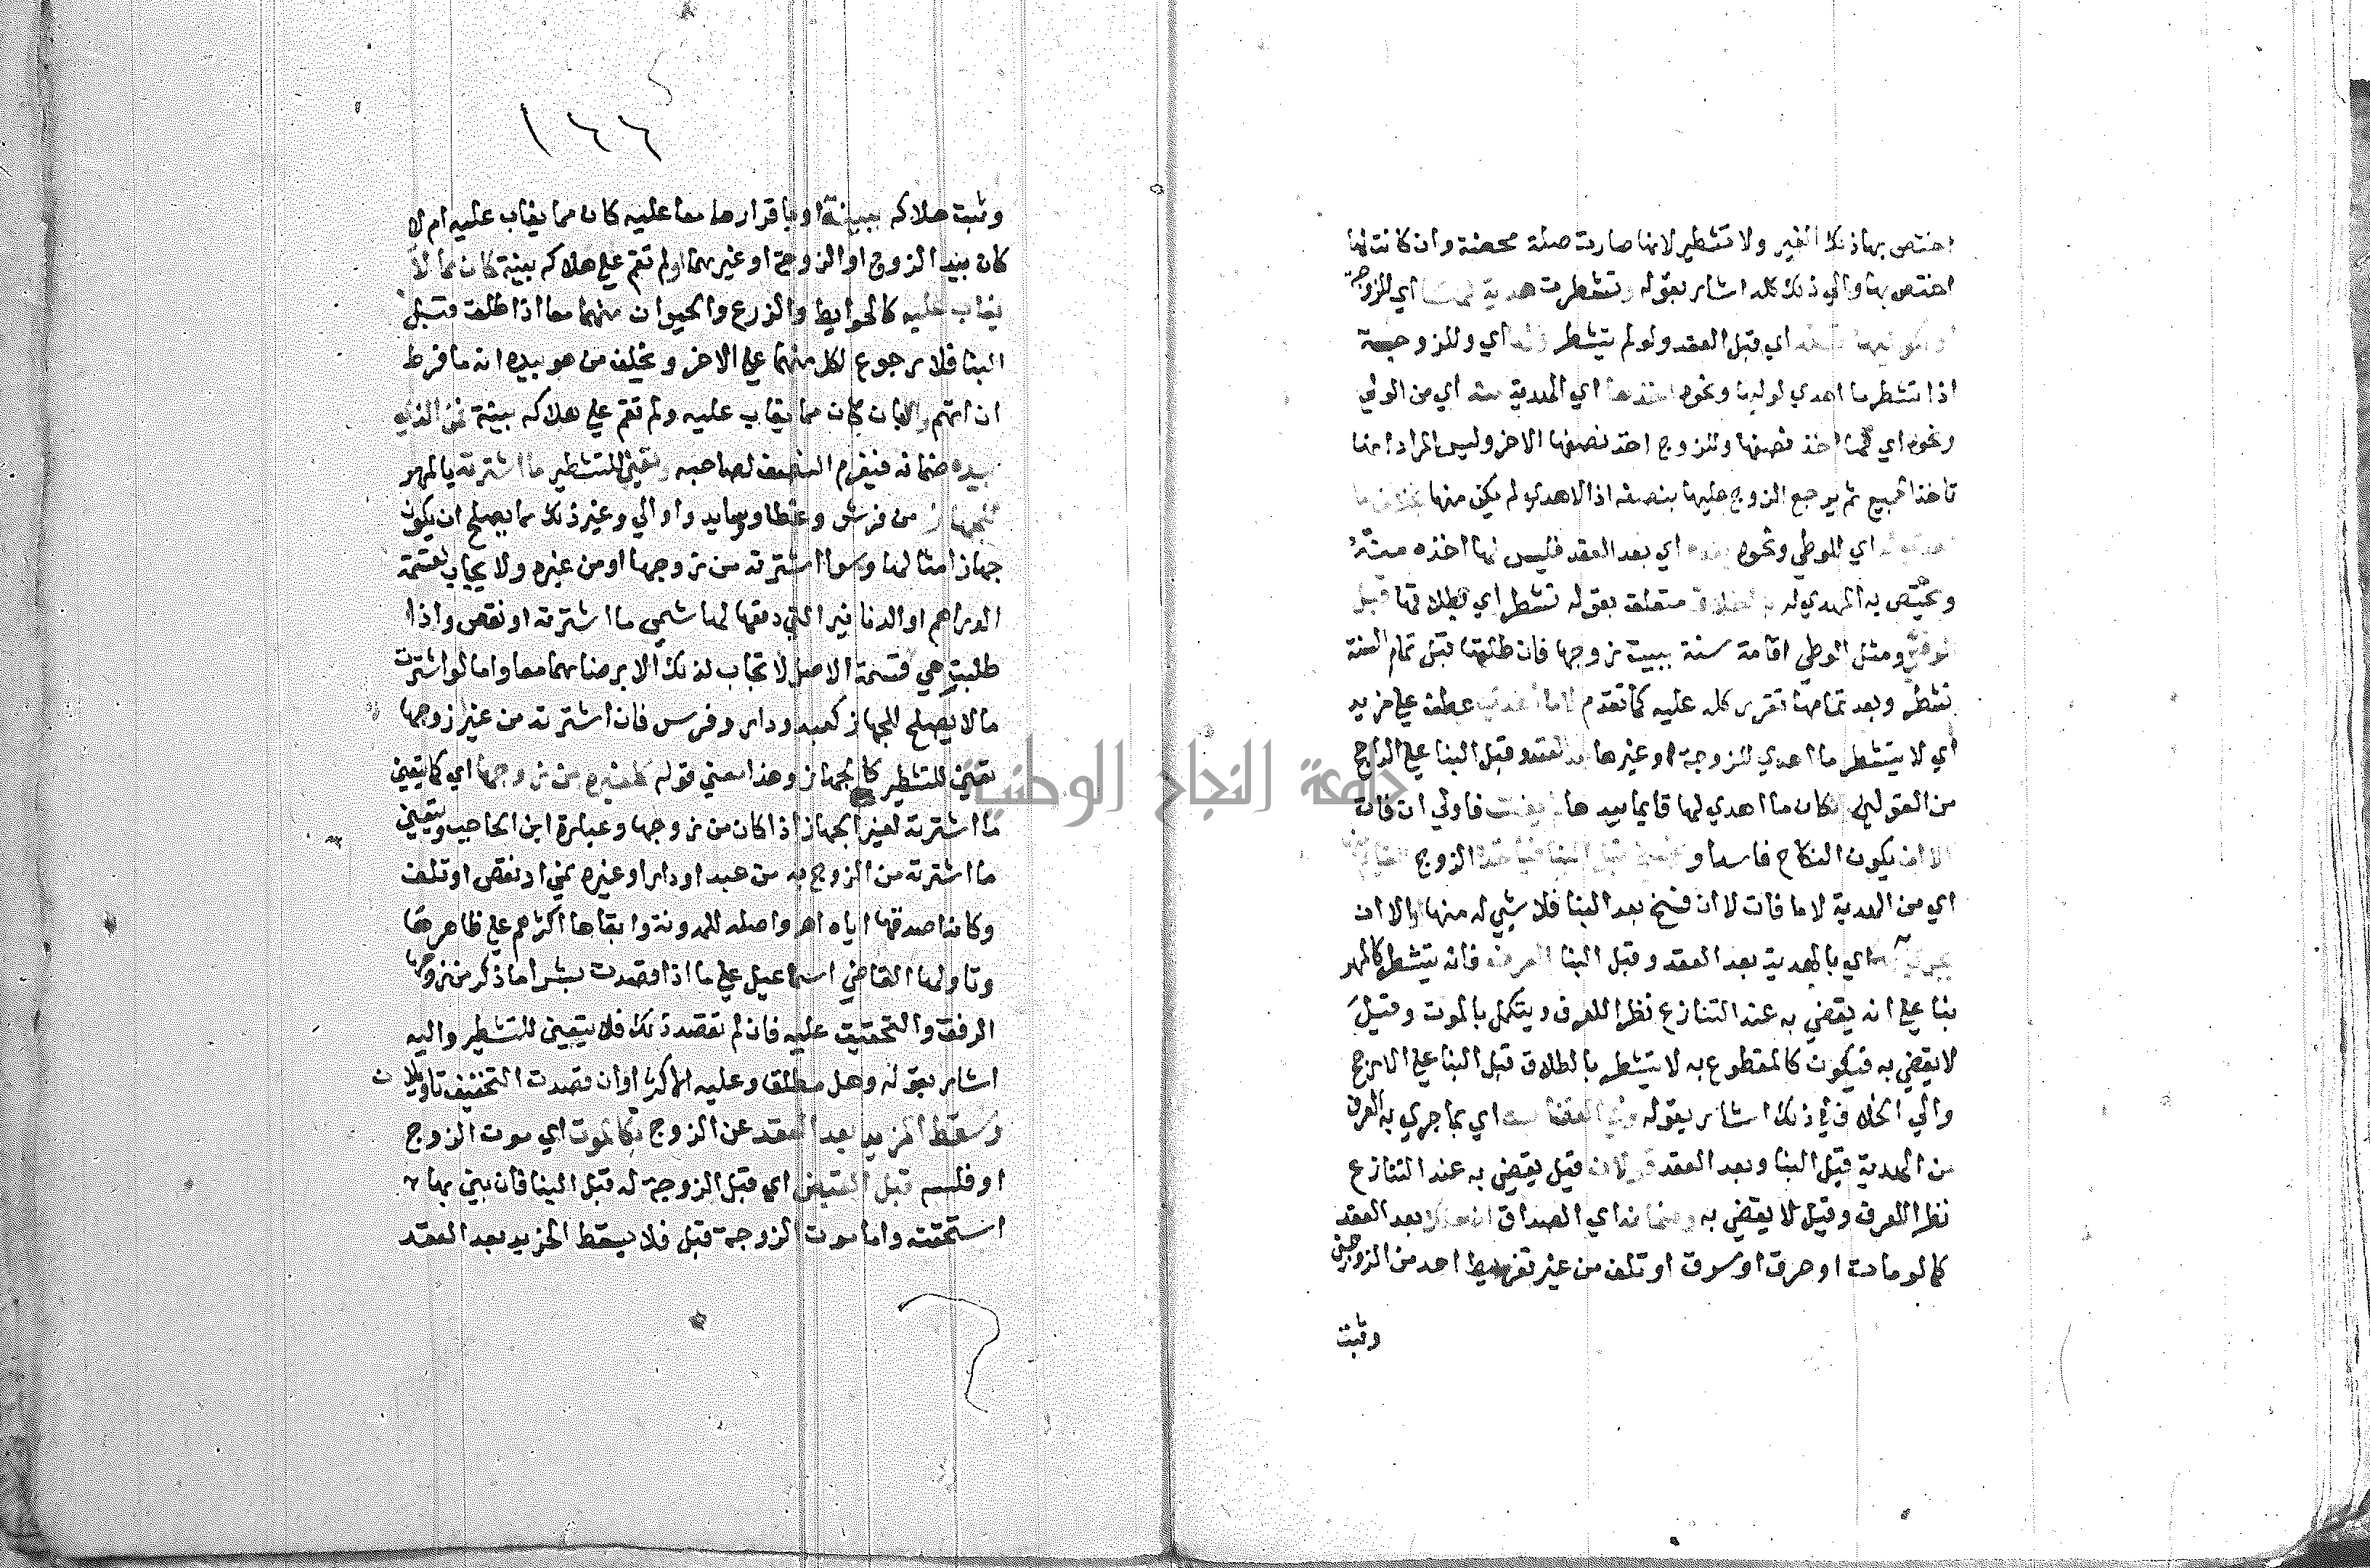 اختص بها ذلك الغير ولا تتشطر لانها صارت صلة محضة وان كانت لها
اختص بها والي ذلك كله اشار بقوله وتشطرت هدية اي للزوجة
اي قبل العقد ولو لم تشطر اي وللزوجة
اذا تشطر ما اهدي لوليها ونحوه اخذها اي الهدية منه اي من الولي
ونحوه اي فلها اخذ نصفها وللزوج اخذ نصفها الاخر وليس المراد انها
تاخذ الجميع ثم يرجع الزوج عليها بنصفه اذ الاهداء لم يكن منها بخلاف ما
اي للولي ونحوه بعده اي بعد العقد فليس لها اخذه منه
ويختص به المهدي له بالطلاق متعلق بقوله تشطر اي بطلاقها قبل
ومثل الوطي اقامة سنة ببيت زوجها فان طلقها قبل تمام السنة
تشطر وبعد تمامها تقرر كله عليه كما تقدم لا ما اهديت عطف علي مزيد
اي لا يتشطر ما اهدي للزوجة او غيرها بعد العقد وقبل البنا علي الراجح
من القولين كان ما اهدي لها قايما بيدها فاولي ان فات
الا ان يكون النكاح فاسدا و قبل البنا فياخذ الزوج
اي من الهدية لا ما فات لا ان فسخ بعد البنا فلا شي له منها والا ان
اي بالهدية بعد العقد وقبل البنا العرف فانه يتشطر كالمهر
بنا علي انه يقضي به عند التنازع نظرا للعرف ويتكمل بالموت وقيل
لا يقضي به فيكون كالمقطوع به لا يتشطر بالطلاق قبل البنا علي الارجح
والي الخلاف في ذلك اشار بقوله وفي القضا به اي بما جري به العرف
من الهدية قبل البنا وبعد العقد قولان قيل يقضي به عند التنازع
نظرا للعرف وقيل لا يقضي به وضمانه اي الصداق ان هلك بعد العقد
كما لو مات او حرق او سرق او تلف من غير تفريط احد من الزوجين
وثبت
١٦٦
وثبت هلاكه ببينة او باقرارهما معا عليه كان مما يغاب عليه ام لا
كان بيد الزوج او الزوجة او غيرهما او لم تقم علي هلاكه بينة كان مما لا
يغاب عليه كالحوايط والزرع والحيوان منهما معا اذا طلقت قبل
البنا فلا رجوع لكل منهما علي الاخر ويحلف من هو بيده انه ما فرط
ان اتهم والا بان كان مما يغاب عليه ولم تقم علي هلاكه بينة فمن الذي
بيده ضمانه فيغرم النصف لصاحبه وتعين للتشطير ما اشترته بالمهر
للجهاز من فرش وغطا ووسايد واواني وغير ذلك مما يصلح ان يكون
جهاز امثالها وسوا اشترته من زوجها او من غيره ولا يجاب لقسمة
الدراهم او الدنانير التي دفعها لها سمي ما اشترته او نقص واذا
طلبت هي قسمة الاصل لا تجاب لذلك الا برضاهما معا واما لو اشترت
ما لا يصلح للجهاز كعبد ودار وفرس فان اشترته من غير زوجها
تعين للتشطير كالجهاز وهذا معني قوله كلغيره من زوجها اي كما يتعين
ما اشترته لغير الجهاز اذا كان من زوجها وعبارة ابن الحاجب ويتعين
ما اشترته من الزوج به من عبد او دار او غيره نمي او نقص او تلف
وكانه اصدقها اياه اهـ واصله للمدونة وابقاها اكثرهم علي ظاهرها
وتاولها القاضي اسماعيل علي ما اذا قصدت بشرا ما ذكر من زوجها
الرفق والتخفيف عليه فان لم تقصد ذلك فلا يتعين للتشطير واليه
اشار بقوله وهل مطلقا وعليه الاكثر او ان قصدت التخفيف تاويلان
وسقط المزيد بعد العقد عن الزوج بكالموت اي موت الزوج
او فلسه قبل القبض اي قبل الزوجة له قبل البنا فان بني بها
استحقته واما موت الزوجة قبل فلا يسقط المزيد بعد العقد
جامعة النجاح الوطنية